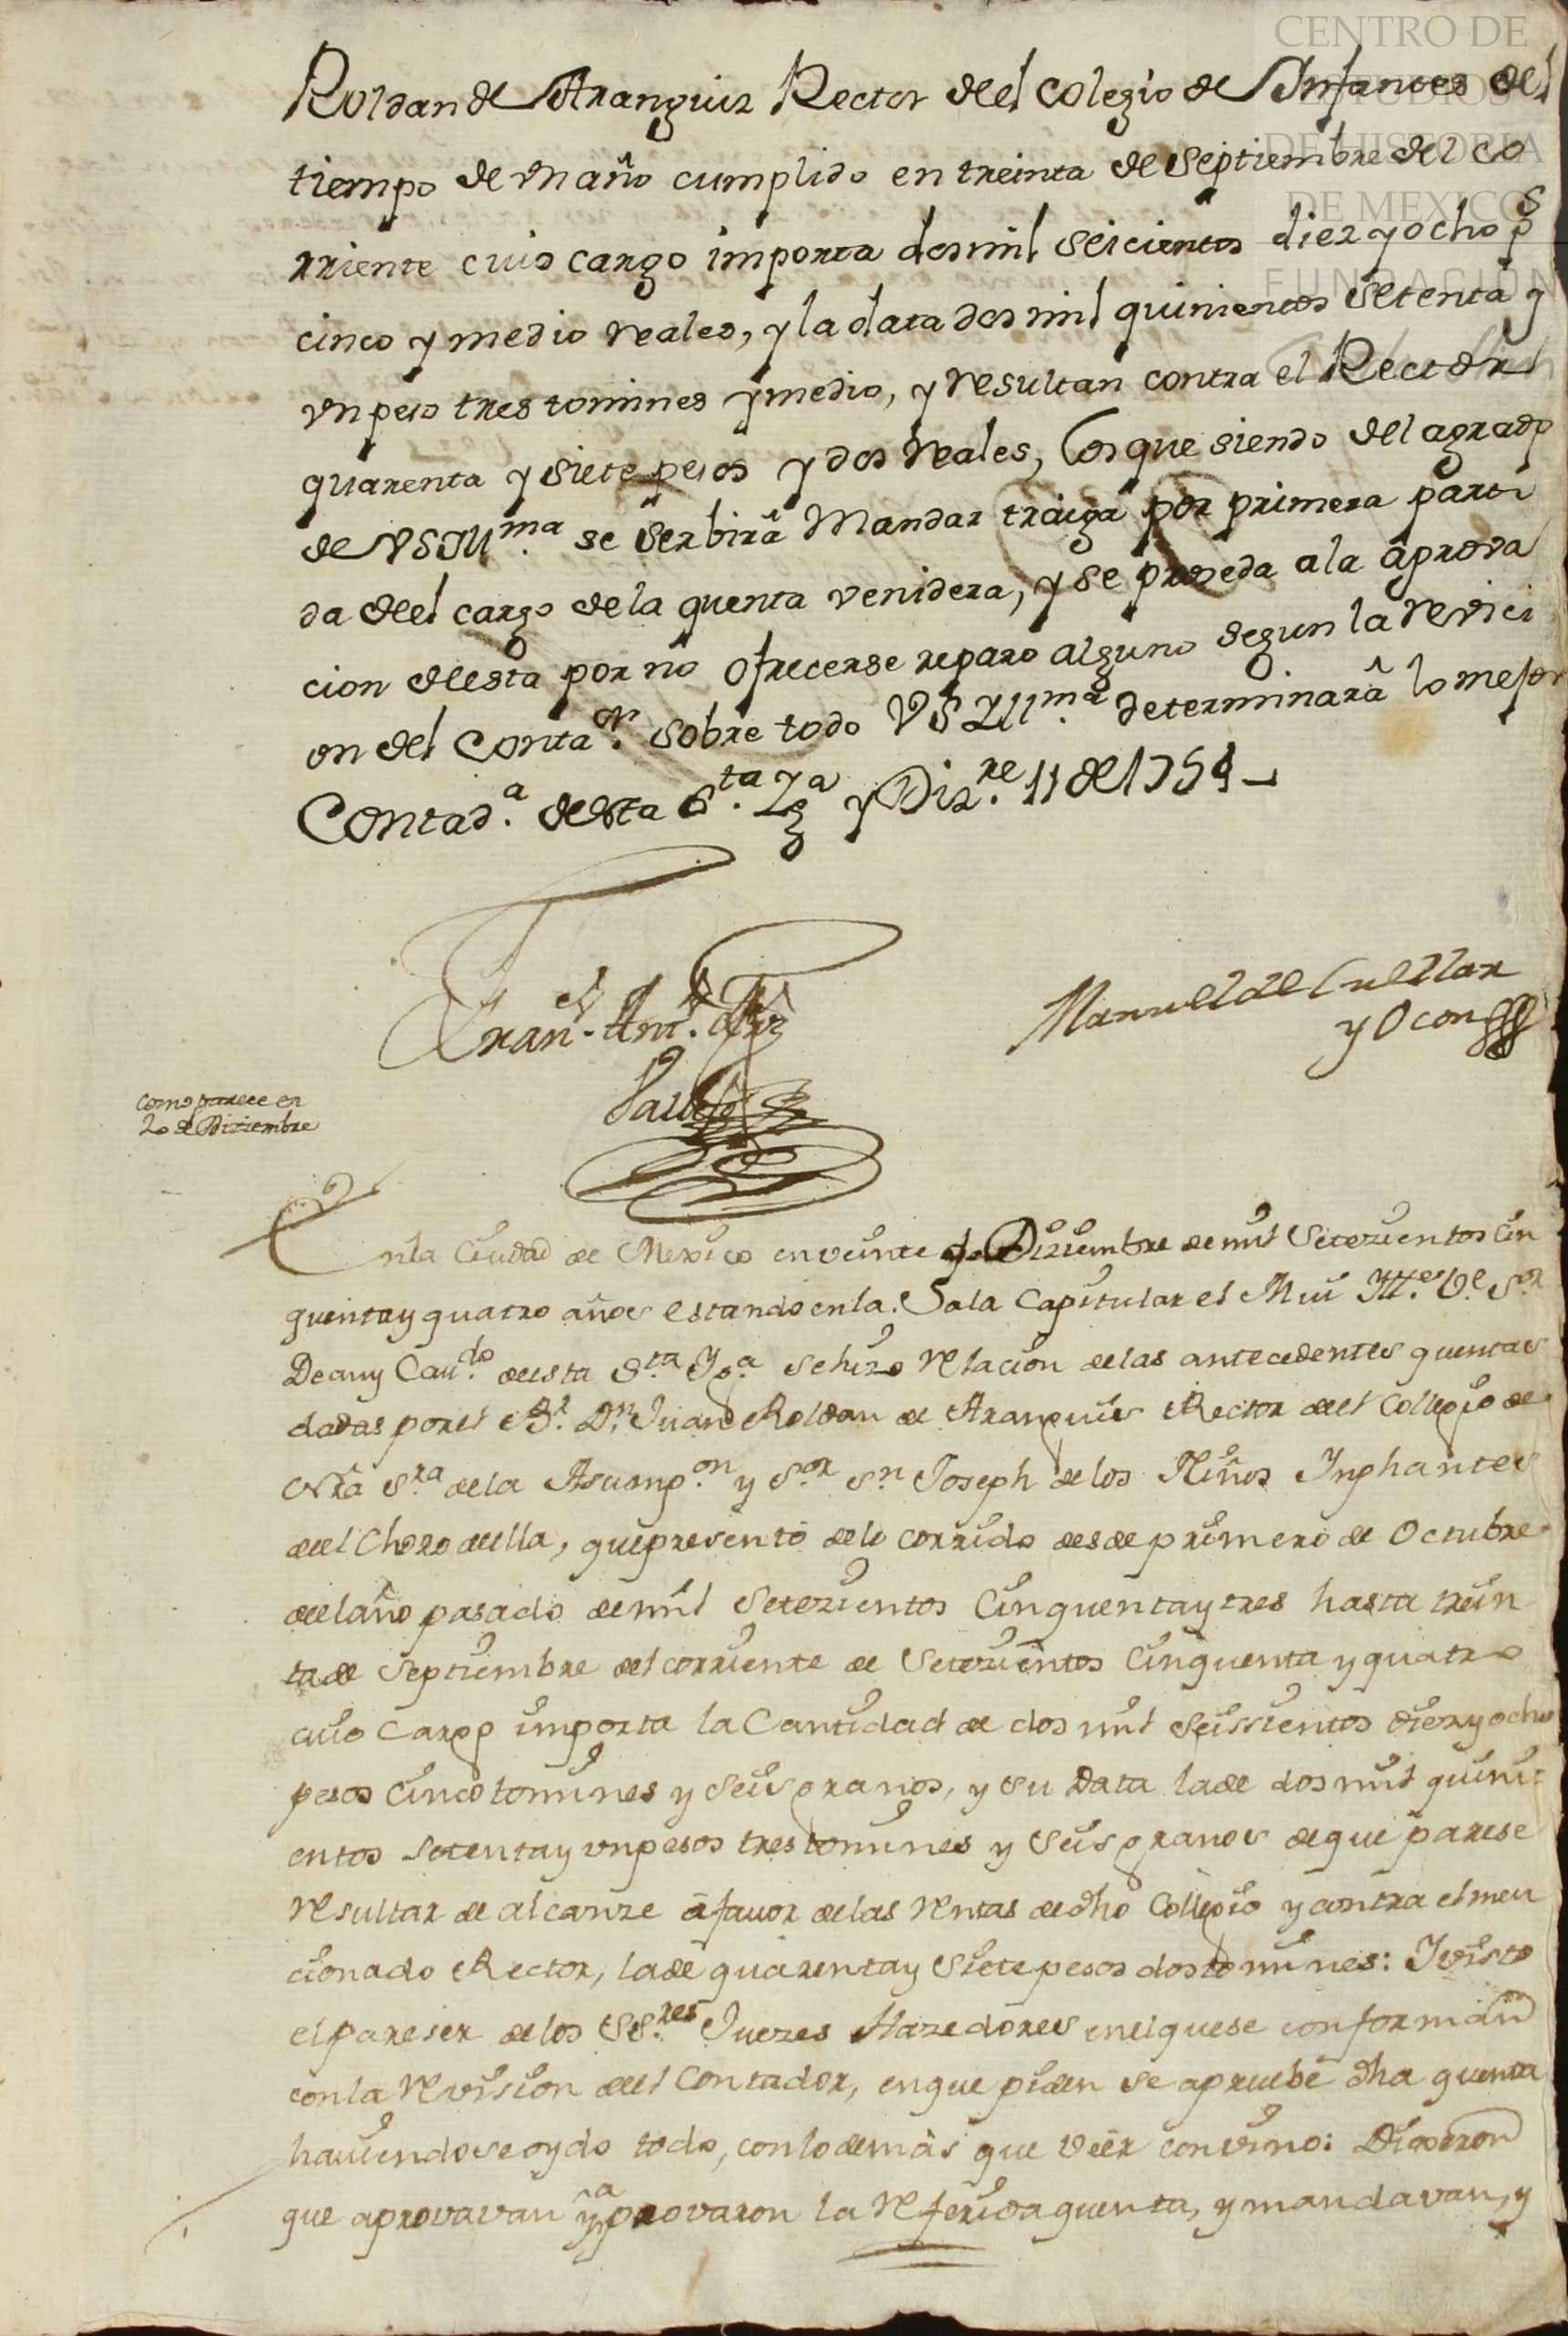 CENTRO DE
ESTUDIOS
DE HISTORIA
DE MEXICO
FUNDACIÓN
Roldan de Aranguiz Rector deel Colegio de Infantes del
tiempo de vn año cumplido en treinta de Septiembre del co
rriente cuio cargo importa dos mil seicientos diez y ocho ps
cinco y medio reales, y la data dos mil quinientos setenta y
vn peso tres tomines y medio, y resultan contra el Rector
quarenta y siete pesos y dos reales, los que siendo del agrado
de VSIllma. se serbirà Mandar traiga por primera parti
da deel cargo de la quenta venidera, y se proseda a la âprova
cion deesta por no ofrecerse reparo alguno segun la revici
on del Contaor. sobre todo VSIllma. determinarâ lo mejor
Contada. deesta Sta. Yga y Dizre. 11 de 1754
Franco. Anto.
Manuel de Cuellar
y Ocon
como parece en
20 de Diziembre
En la Ciudad de Mexico en veinte de Diziembre de mil Setezientos Cin
quenta y quatro años estando en la Sala Capitular el Mui Itte. Ve. Sor
Dean y Cavdo. deesta Sta. Yga. se hizo relacion de las antecedentes quentas
dadas por el Br. Dn. Juan Roldan de Aranguis Rector deel Collegio de
Nrâ Sra de la Asumpon. y Sor. Sn Joseph de los Niños Inphantes
deel Choro deella, que presentó de lo corrido desde primero de Octubre
deel año pasado de mil Setezientos Cinquenta y tres hasta trein
ta de Septiembre del corriente de Setezientos Cinquenta y quatro
cuio Cargo importa la Cantidad de dos mil Seissientos diez y ocho
pesos Cinco tomines y Seis granos, y su Data la de dos mil quini
entos setenta y vn pesos tres tomines y Seis granos de que parese
resultar de alcanze â favor de las rentas de dho Collegio y contra el men
cionado Rector, la de quarenta y Siete pesos dos tomines: Y visto
el pareser de los SSres. Juezes Hazedores en el que se conforman
con la revision deel Contador, en que piden se apruebe dha quenta
haviendose oydo todo, con lo demàs que veèr convino: Dixeron
que aprovavan y aprovaron la referida quenta, y mandavan, y